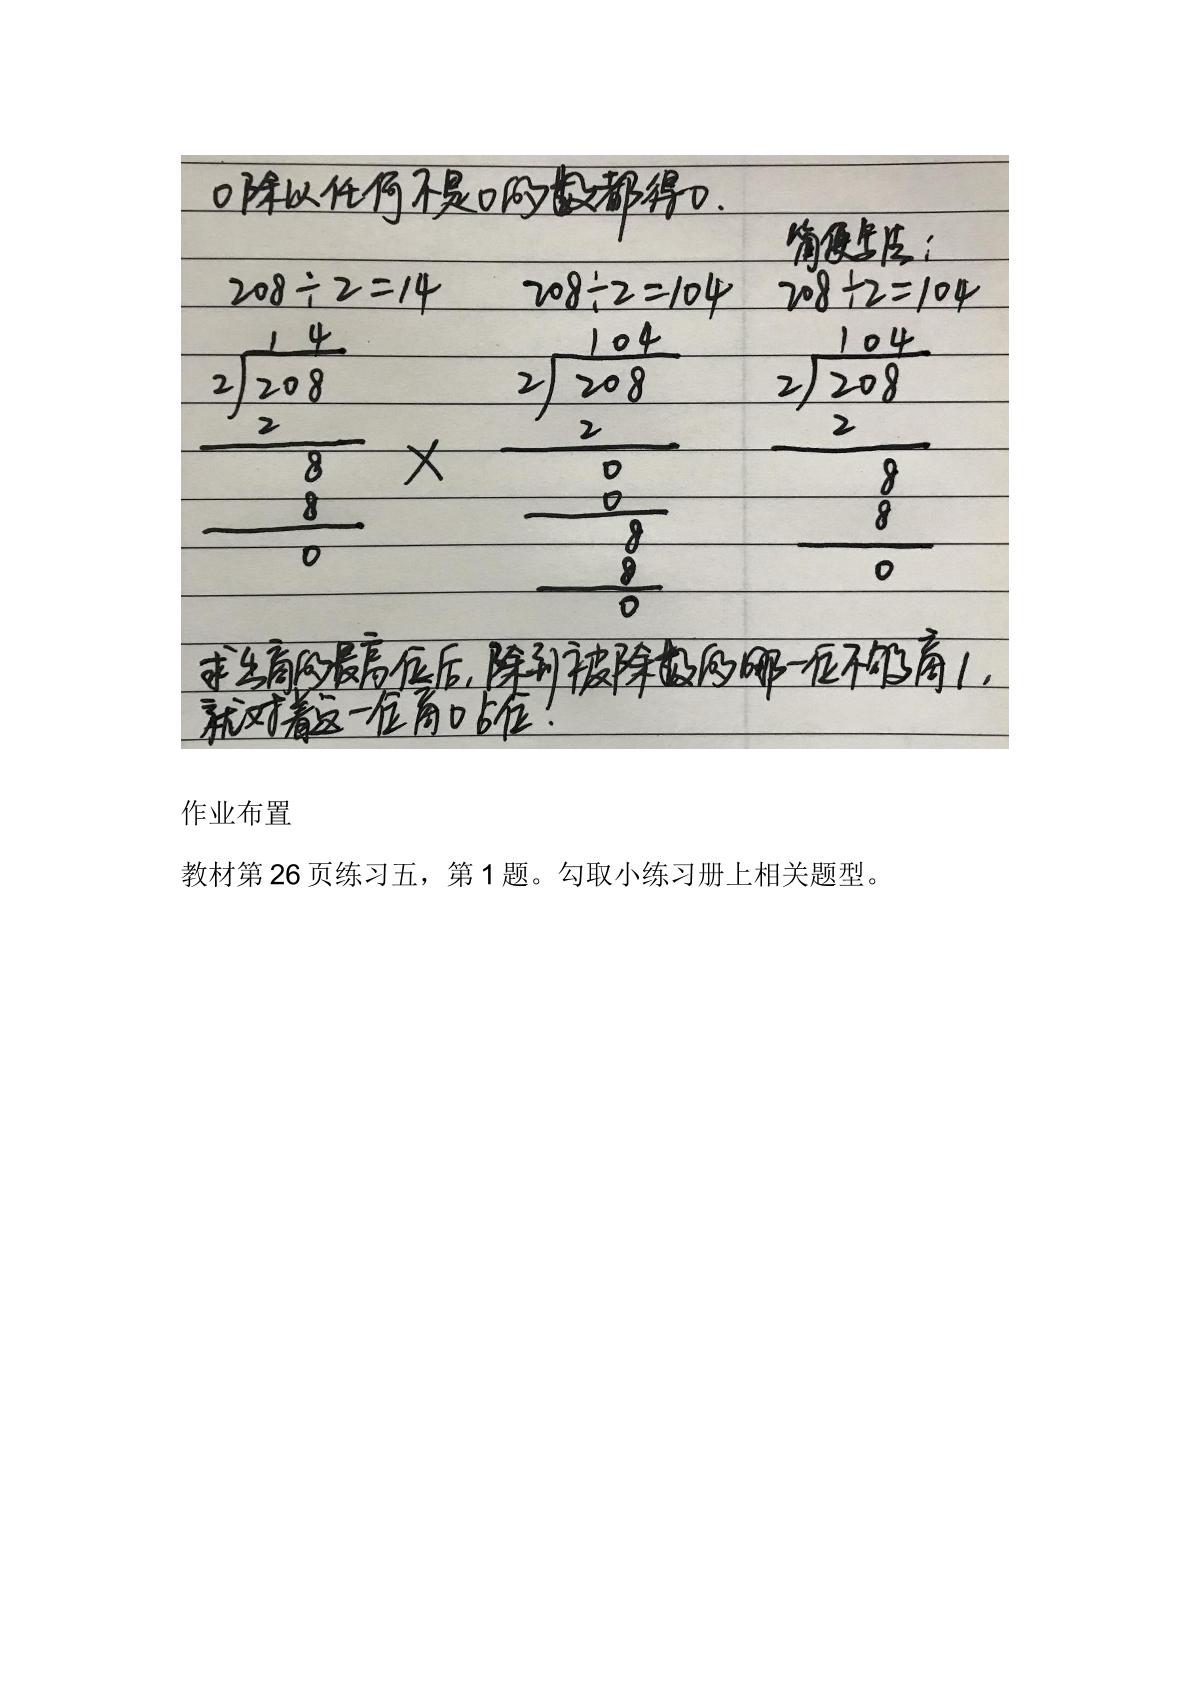 0除以任何不是0的数都得0.
简便写法:
208÷2=14 208÷2=104 208÷2=104
1 4 104 104
2 208 2 208 2 208
2 2 2
8 × 0 8
8 0 8
0 8 0
8
0
求出商的最高位后,除到被除数的哪一位不够商1,
就对着这一位商0占位!
作业布置
教材第26页练习五，第1题。勾取小练习册上相关题型。